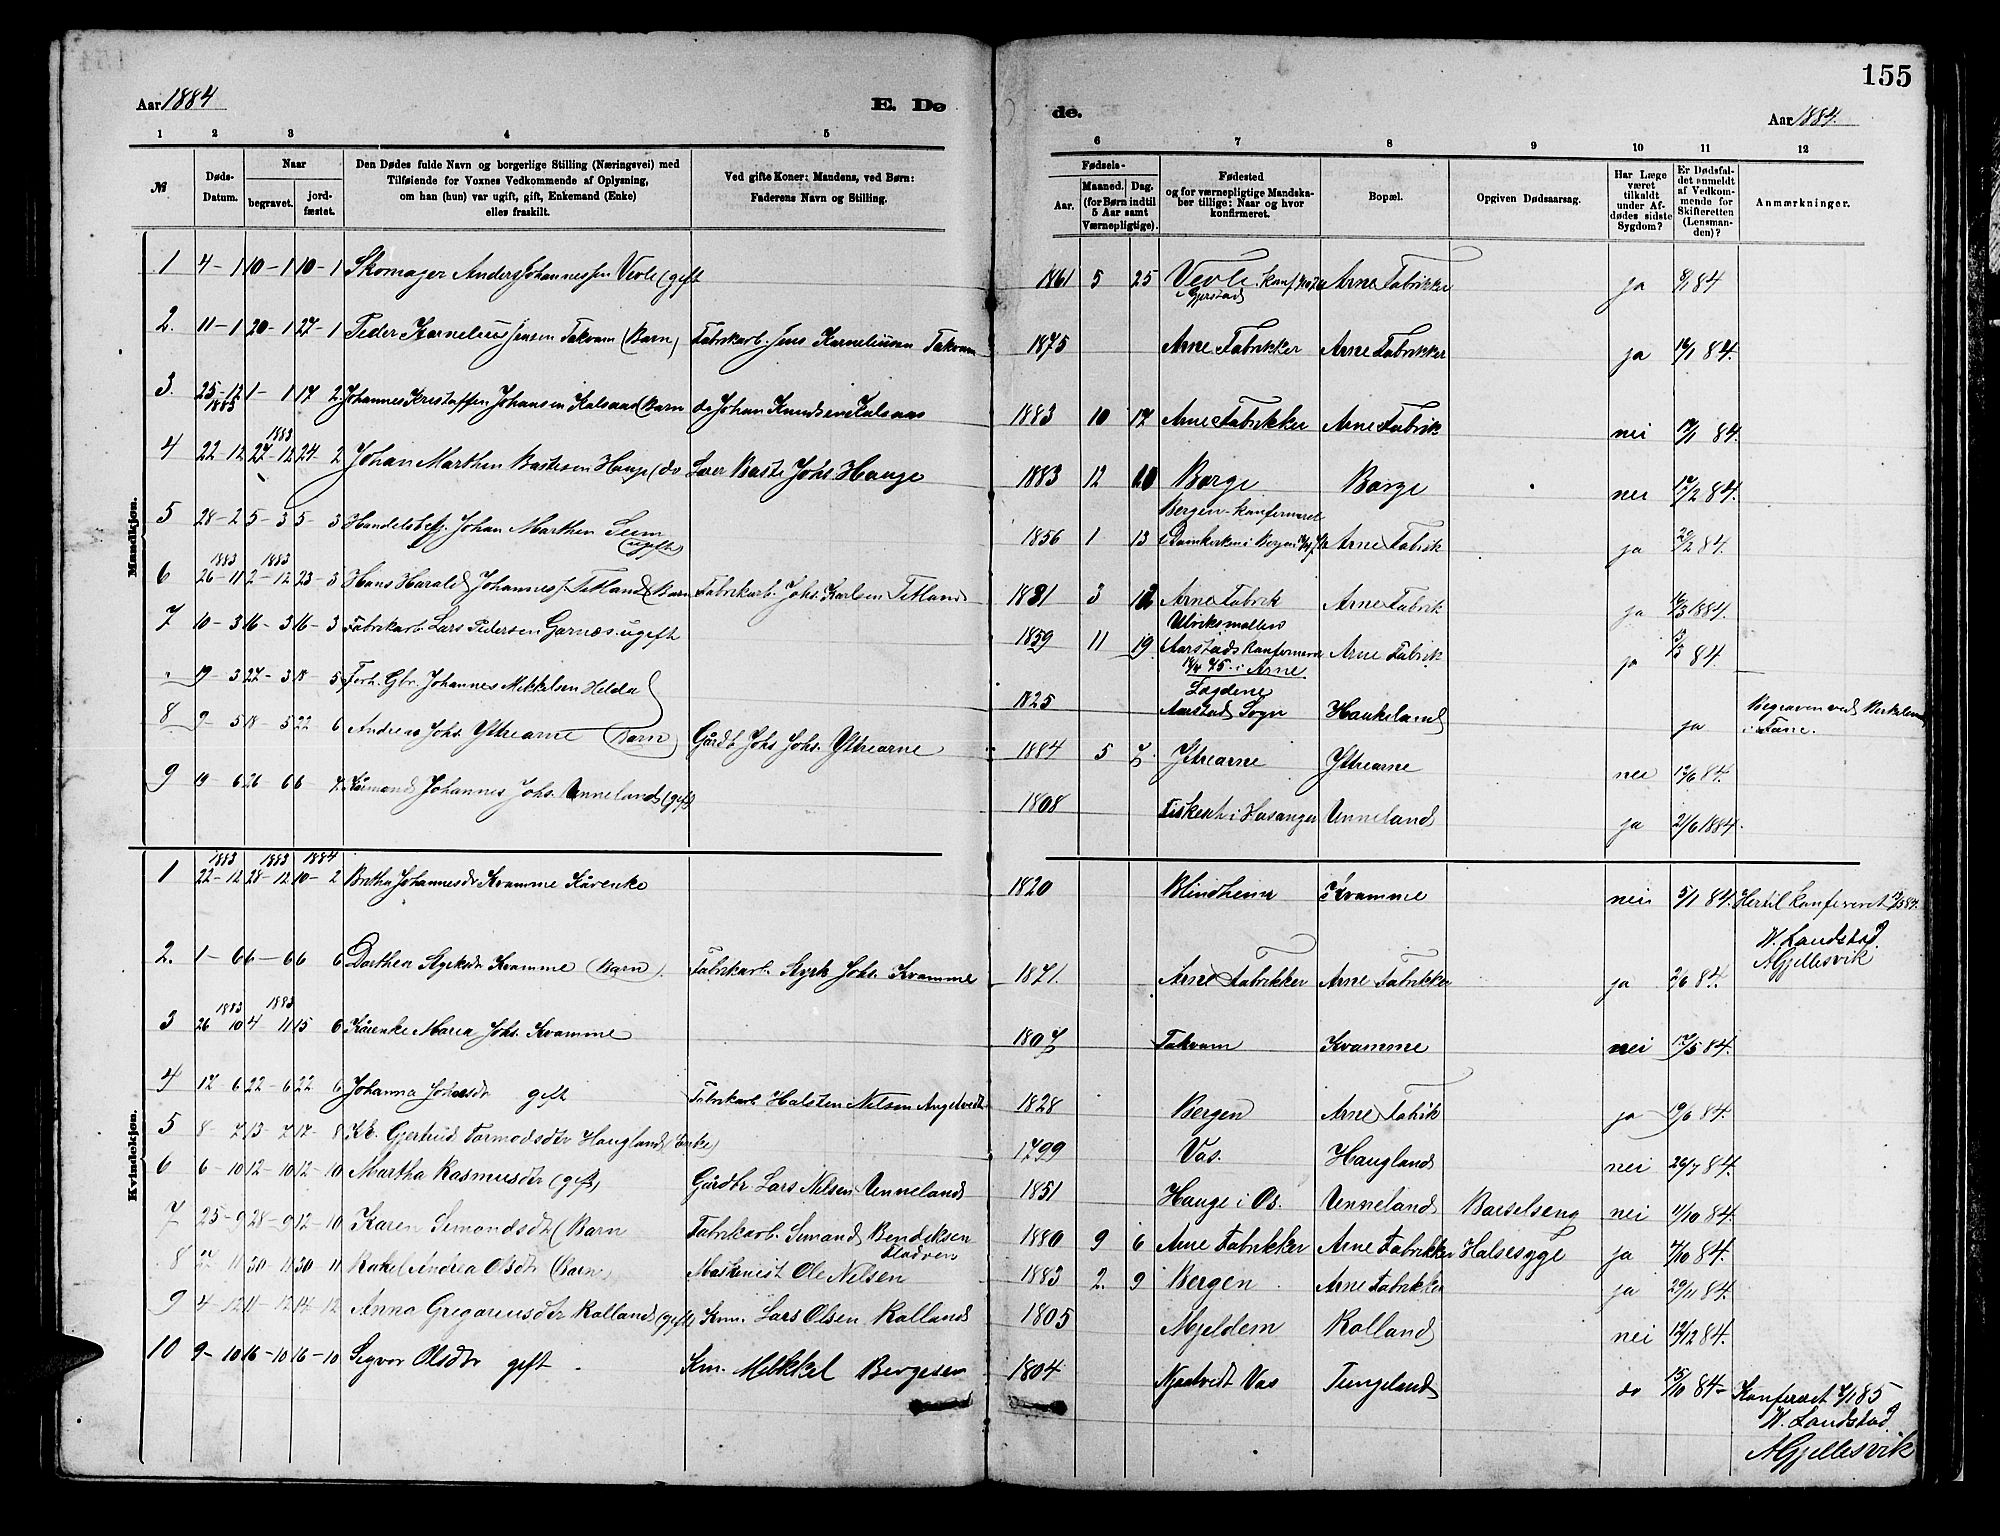 155
Aar 1884
E. Dø
de.
Aar 1884.
1 2 3 4 5
6 7 8 9 10 11 12
№
Døds-Datum.
Naar
begravet.
jord-fæstet.
Den Dødes fulde Navn og borgerlige Stilling (Næringsvei) med
Tilføiende for Voxnes Vedkommende af Oplysning,
om han (hun) var ugift, gift, Enkemand (Enke)
elles fraskilt.
Ved gifte Koner: Mandens, ved Børn:
Faderens Navn og Stilling.
Fødsels-
Aar.
Maaned.
Dag.
(for Børn indtil
5 Aar samt
Værnepligtige).
Fødested
og for værnepligtige Mandska-
ber tillige: Naar og hvor
konfirmeret.
Bopæl.
Opgiven Dødsaarsag.
Har Læge
været
tilkaldt
under Af-
dødes sidste
Sygdom?
Er Dødsfal-
det anmeldt
af Vedkom-
mende for
Skifteretten
(Lensman-
den)?
Anmærkninger.
Mandkjøn.
1 4-1 10-1 10-1 Skomager Anders Johannessen Vevle (gift 1861 5 25 Vevle i Gjerstad Arne Fabrikker ja 8/1 84
2. 11-1 20-1 27-1 Peder Kornelius Jensen Takvam (Barn) Fabrikarb. Jens Korneliussen Takvam 1875 Arne Fabrikker Arne Fabrikker ja 84.
3. 25-12 1883 1-1 17 2 Johannes Kristoffen Johansen Kalsaas (Barn do Johan Knudsen Kalsaas 1883 10 17 Arne Fabrikker Arne Fabrik nei 84.
4 22-12 27-12 1883 24-2 Johan Marthen Bastesen Hauge (do Lærer Baste Johs. Hauge 1883 12 20 Borge Borge nei 84.
5 28-2 5-3 5-3 Handelsbetj. Johan Marthen Seim (ugift) 1856 1 13 Bergen konfirmeret i Domkirken i Bergen Arne Fabrik ja 84.
6 26-11 1883 2-12 1883 23-3 Hans Harald Johanness. Titland (Barn Fabrikarb. Johs. Karlsen Titland 1881 3 12 Arne Fabrik Arne Fabrik ja 1884.
7 10-3 16-3 16-3 Fabrikarb. Lars Pedersen Garnæs. ugift 1859 11 19 Ulriksmollen Aarstads konfirmeret 75 i Arne Arne Fabrik ja 84.
19-3 27-3 18 5 Forh. Gbr. Johannes Mikkelsen Helda 1825 Lagdene Aarstad Sogn Haukeland ja Begraven ved Birkeland i Fane.
8 9-5 18-5 22 6 Andreas Johs. Ytrearne (Barn) Gårdb. Johs Johs. Ytrearne 1884 5 7. Ytrearne Ytrearne nei 12/6 84.
9 19-6 26 6 6 7 Kårmand Johannes Johs. Unneland (gift) 1808 Fiskeset i Hosanger Unneland ja 21/6 1884.
Kvindekjøn.
1 22-12 1883 28-12 1883 10-2 1884 Bertha Johannesdr Kvamme Kårenke 1820 Blindheim Kvamme nei 5/1 84. Hertil konfereret 84.
W. Landstad.
AGjellesvik
2. 1-6 6-6 6 6 Dorthea Styrksdr Kvamme (Barn). Fabrikarb. Styrk Johs. Kvamme 1871. Arne Fabrikker Arne Fabrikker ja 2/6 84.
3 26 10 1883 4 11 1883 15 6 Kårenke Maria Johs. Kvamme 1807 Takvam Kvamme nei 17/5 84.
4 17 6 22-6 22 6 Johanna Johnsdr gift Fabrikarb Halsten Nilsen Angeltvedt 1828 Bergen Arne Fabrik ja 19/6 84.
5 8-7 13-7 17-8 KE. Gjertrud Tormodsdtr Haugland (Enke) 1799 Vos. Haugland nei 26/7 84.
6 6-10 12-10 12-10 Martha Rasmusdtr (gift) Gårdbr Lars Nilsen Unneland 1851 Hauge i Os. Unneland Barselseng nei 11/10 84.
7 25-9 28-9 12-10 Karen Simondsdtr (Barn Fabrikarb. Simond Bendiksen 1880 9 6 Arne Fabrikker Arne Fabrikker Halsesyge ja 84.
8 11 30 11 30 11 Rakel Andrea Olsdtr (Barn) Maskinist Ole Nilsen 1883 2. 9 Bergen Arne Fabrikker ja 29/11 84.
9 4-12 11-12 14-12 Anna Gregoriusdtr Rolland (gift) Kmn. Lars Olsen Rolland 1805 Mjeldem Rolland nei 12/12 84.
10 9-10 16-10 16-10 Sigvor Olsdtr gift Km. Mikkel Bergesen 1804 Kjastvedt Vos Tungeland do 15/10 84 Konfereret 85
W. Landstad.
AGjellesvik